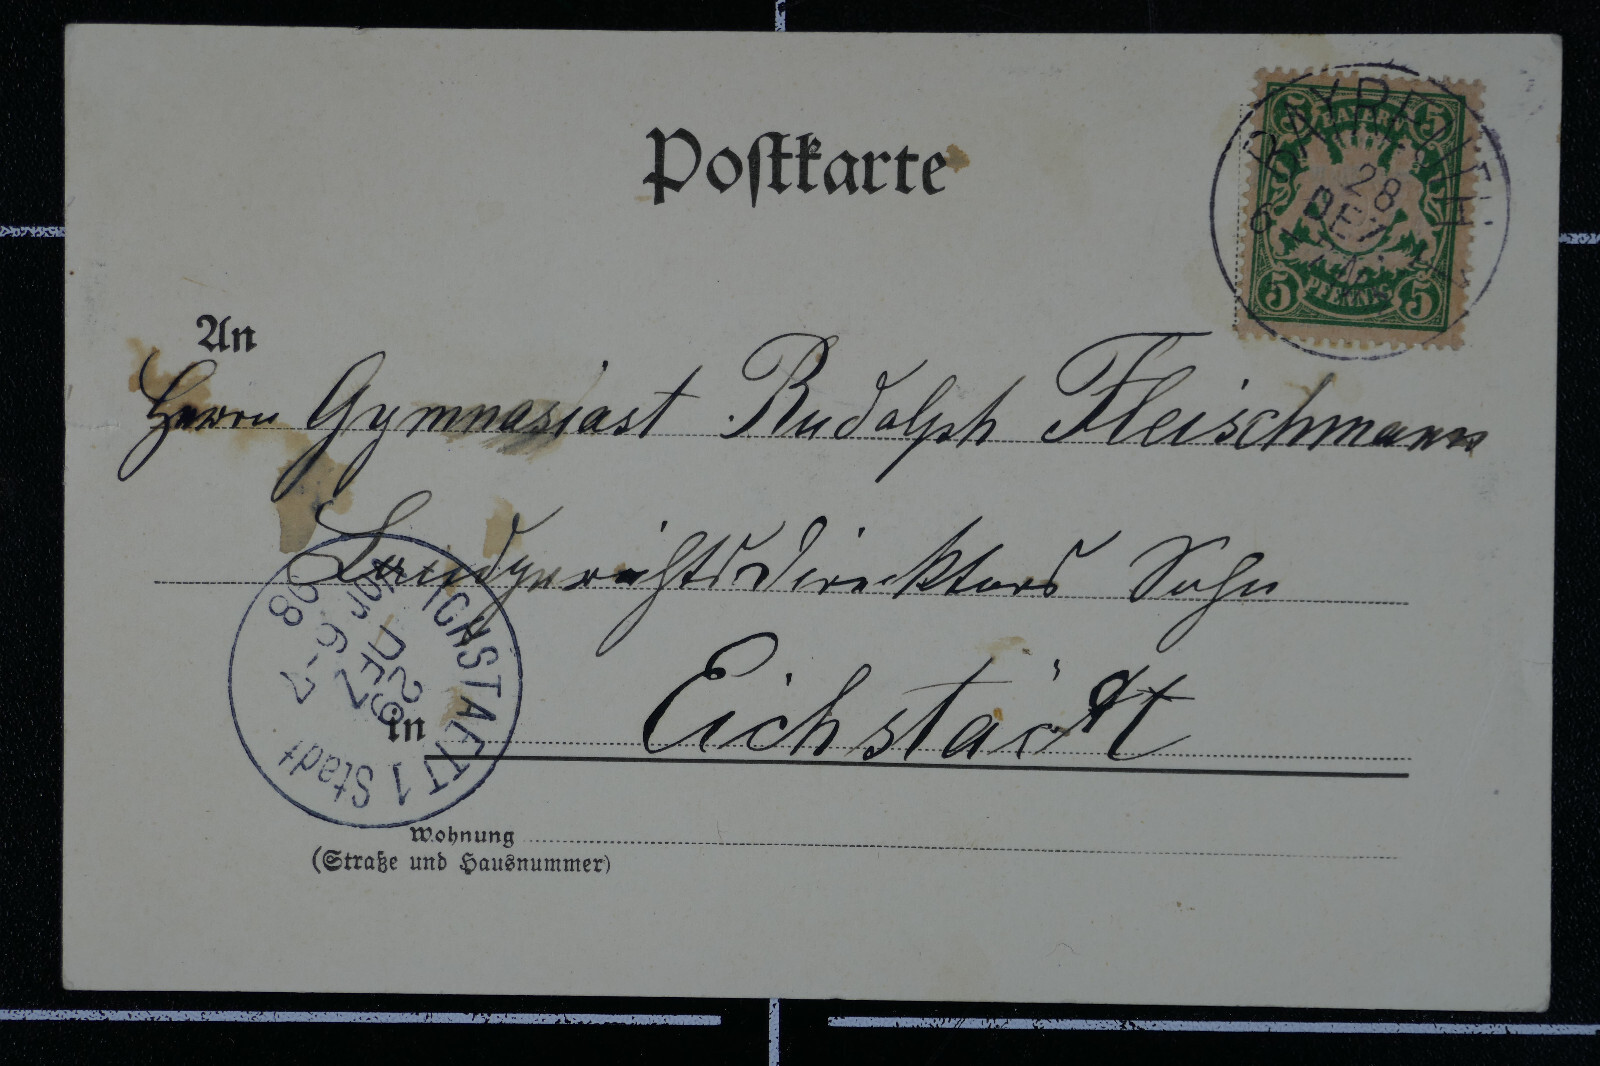 Postkarte
BAYREUTH
28
DEZ
6
5 BAYERN 5
5 PFENNIG 5
An
Herrn Gymnasiast Rudolph Fleischmann
Landgerichtsdirektors Sohn
in Eichstädt
EICHSTAETT 1 Stadt
29
DEZ
Vor 6-7
98
Wohnung
(Straße und Hausnummer)